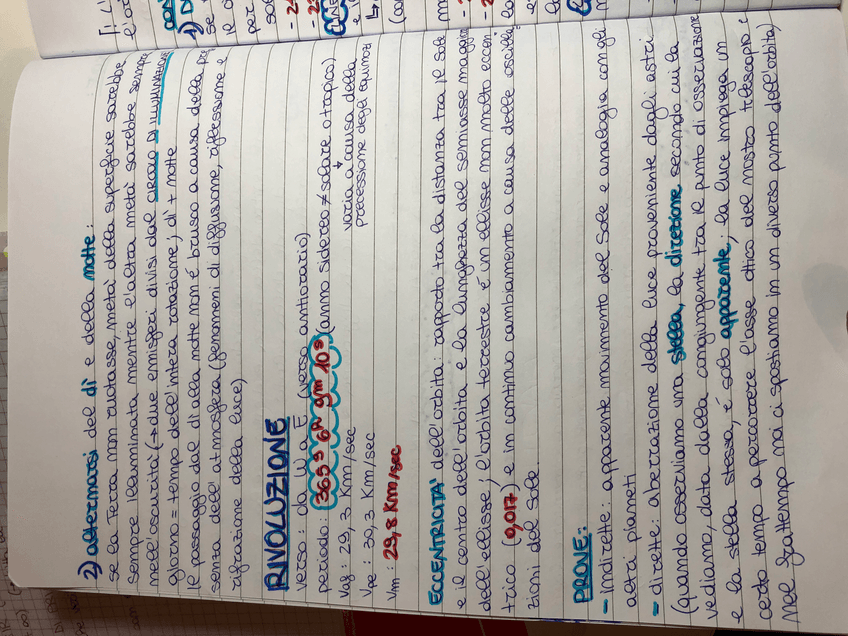 2) alternarsi del dì e della notte:
se la Terra non ruotasse, metà della superficie sarebbe
sempre illuminata mentre l'altra metà sarebbe sempre
nell'oscurità (→ due emisferi divisi dal CIRCOLO DI ILLUMINAZIONE
giorno = tempo dell'intera rotazione; dì + notte
Il passaggio dal dì alla notte non è brusco a causa della pre
senza dell'atmosfera (fenomeni di diffusione, riflessione e
rifrazione della luce)
RIVOLUZIONE
verso: da W a E (verso antiorario)
periodo: 365g 6h 9m 10s (anno sidereo ≠ solare o tropico)
Vaf: 29,3 Km/sec varia a causa della
Vpe: 30,3 Km/sec precessione degli equinozi
Vm: 29,8 Km/sec
ECCENTRICITÀ dell'orbita: rapporto tra la distanza tra il Sole
e il centro dell'orbita e la lunghezza del semiasse maggior
dell'ellisse; l'orbita terrestre è un ellisse non molto eccen
trico (0,017) e in continuo cambiamento a causa delle oscilla
zioni del Sole
PROVE:
- indirette: apparente movimento del Sole e analogia con gli
altri pianeti
- dirette: aberrazione della luce proveniente dagli astri
(quando osserviamo una stella, la direzione secondo cui la
vediamo, data dalla congiungente tra il punto di osservazione
e la stella stessa, è solo apparente; la luce impiega un
certo tempo a percorrere l'asse ottico del nostro telescopio e
nel frattempo noi ci spostiamo in un diverso punto dell'orbita)